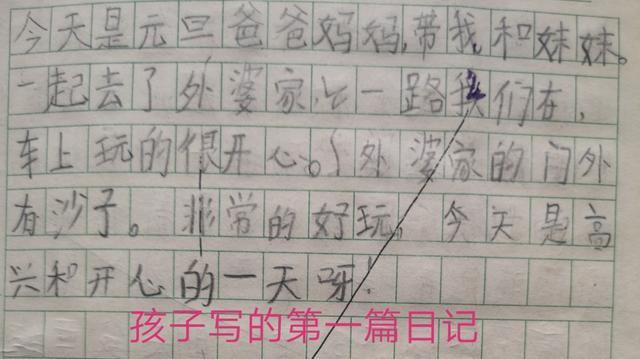 今天是元旦爸爸妈妈,带我,和妹妹。
一起去了外婆家。一路我们在,
车上玩的很开心。外婆家的门外
有沙子。非常的好玩,今天是高
兴和开心的一天呀!
孩子写的第一篇日记